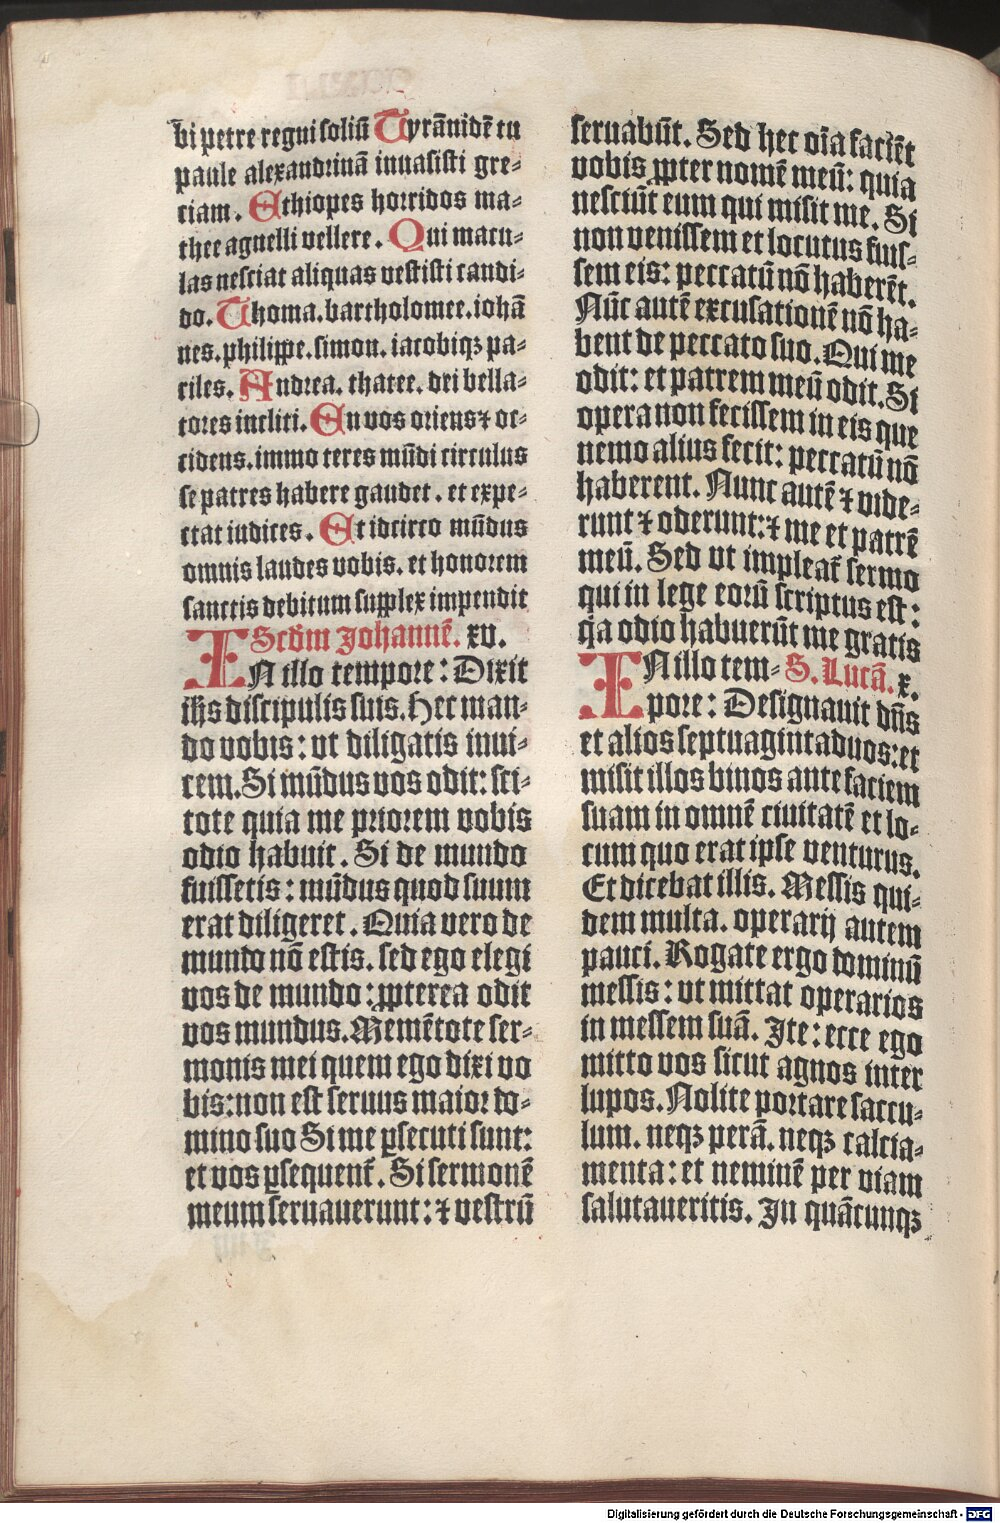 bi petre regni soliũ Tyrãnidẽ tu
paule alexandrinã inuasisti gre⸗
ciam. Ethiopes horridos ma⸗
thee agnelli vellere. Qui macu⸗
las nesciat aliquas vestisti candi⸗
do. Thoma. bartholomee. iohã
nes. philippe. simon. iacobiqꝫ pa⸗
riles. Andrea. thatee. dei bella⸗
tores incliti. En vos oriens ⁊ oc⸗
cidens. immo teres mũdi circulus
se patres habere gaudet. et expe⸗
ctat iudices. Et idcirco mũdus
omnis laudes vobis. et honorem
sanctis debitum supplex impendit
Scđm Johannẽ. xv.
IN illo tempore: Dixit
ihs discipulis suis. Hec man⸗
do vobis: vt diligatis inui⸗
cem. Si mũdus vos odit: sci⸗
tote quia me priorem vobis
odio habuit. Si de mundo
fuissetis: mũdus quod suum
erat diligeret. Quia vero de
mundo nõ estis. sed ego elegi
vos de mundo: ꝓpterea odit
vos mundus. Memẽtote ser⸗
monis mei quem ego dixi vo
bis: non est seruus maior do⸗
mino suo Si me ꝑsecuti sunt:
et vos ꝑsequent̃. Si sermonẽ
meum seruauerunt: ⁊ vestrũ
seruabũt. Sed hec oĩa faciẽt
vobis ꝓpter nomẽ meũ: quia
nesciũt eum qui misit me. Si
non venissem et locutus fuis⸗
sem eis: peccatũ nõ haberẽt.
Nũc autẽ excusationẽ nõ ha⸗
bent de peccato suo. Qui me
odit: et patrem meũ odit. Si
opera non fecissem in eis que
nemo alius fecit: peccatũ nõ
haberent. Nunc autẽ ⁊ vide⸗
runt ⁊ oderunt: ⁊ me et patrẽ
meũ. Sed vt impleat̃ sermo
qui in lege eorũ scriptus est:
q̃a odio habuerũt me gratis
IN illo tem⸗ S. Lucã. x.
pore: Designauit dñs
et alios septuaginta duos: et
misit illos binos ante faciem
suam in omnẽ ciuitatẽ et lo⸗
cum quo erat ipse venturus.
Et dicebat illis. Messis qui⸗
dem multa. operarij autem
pauci. Rogate ergo dominũ
messis: vt mittat operarios
in messem suã. Ite: ecce ego
mitto vos sicut agnos inter
lupos. Nolite portare saccu⸗
lum. neqꝫ perã. neqꝫ calcia⸗
menta: et neminẽ per viam
salutaueritis. In quãcunqꝫ
Digitalisierung gefördert durch die Deutsche Forschungsgemeinschaft - DFG